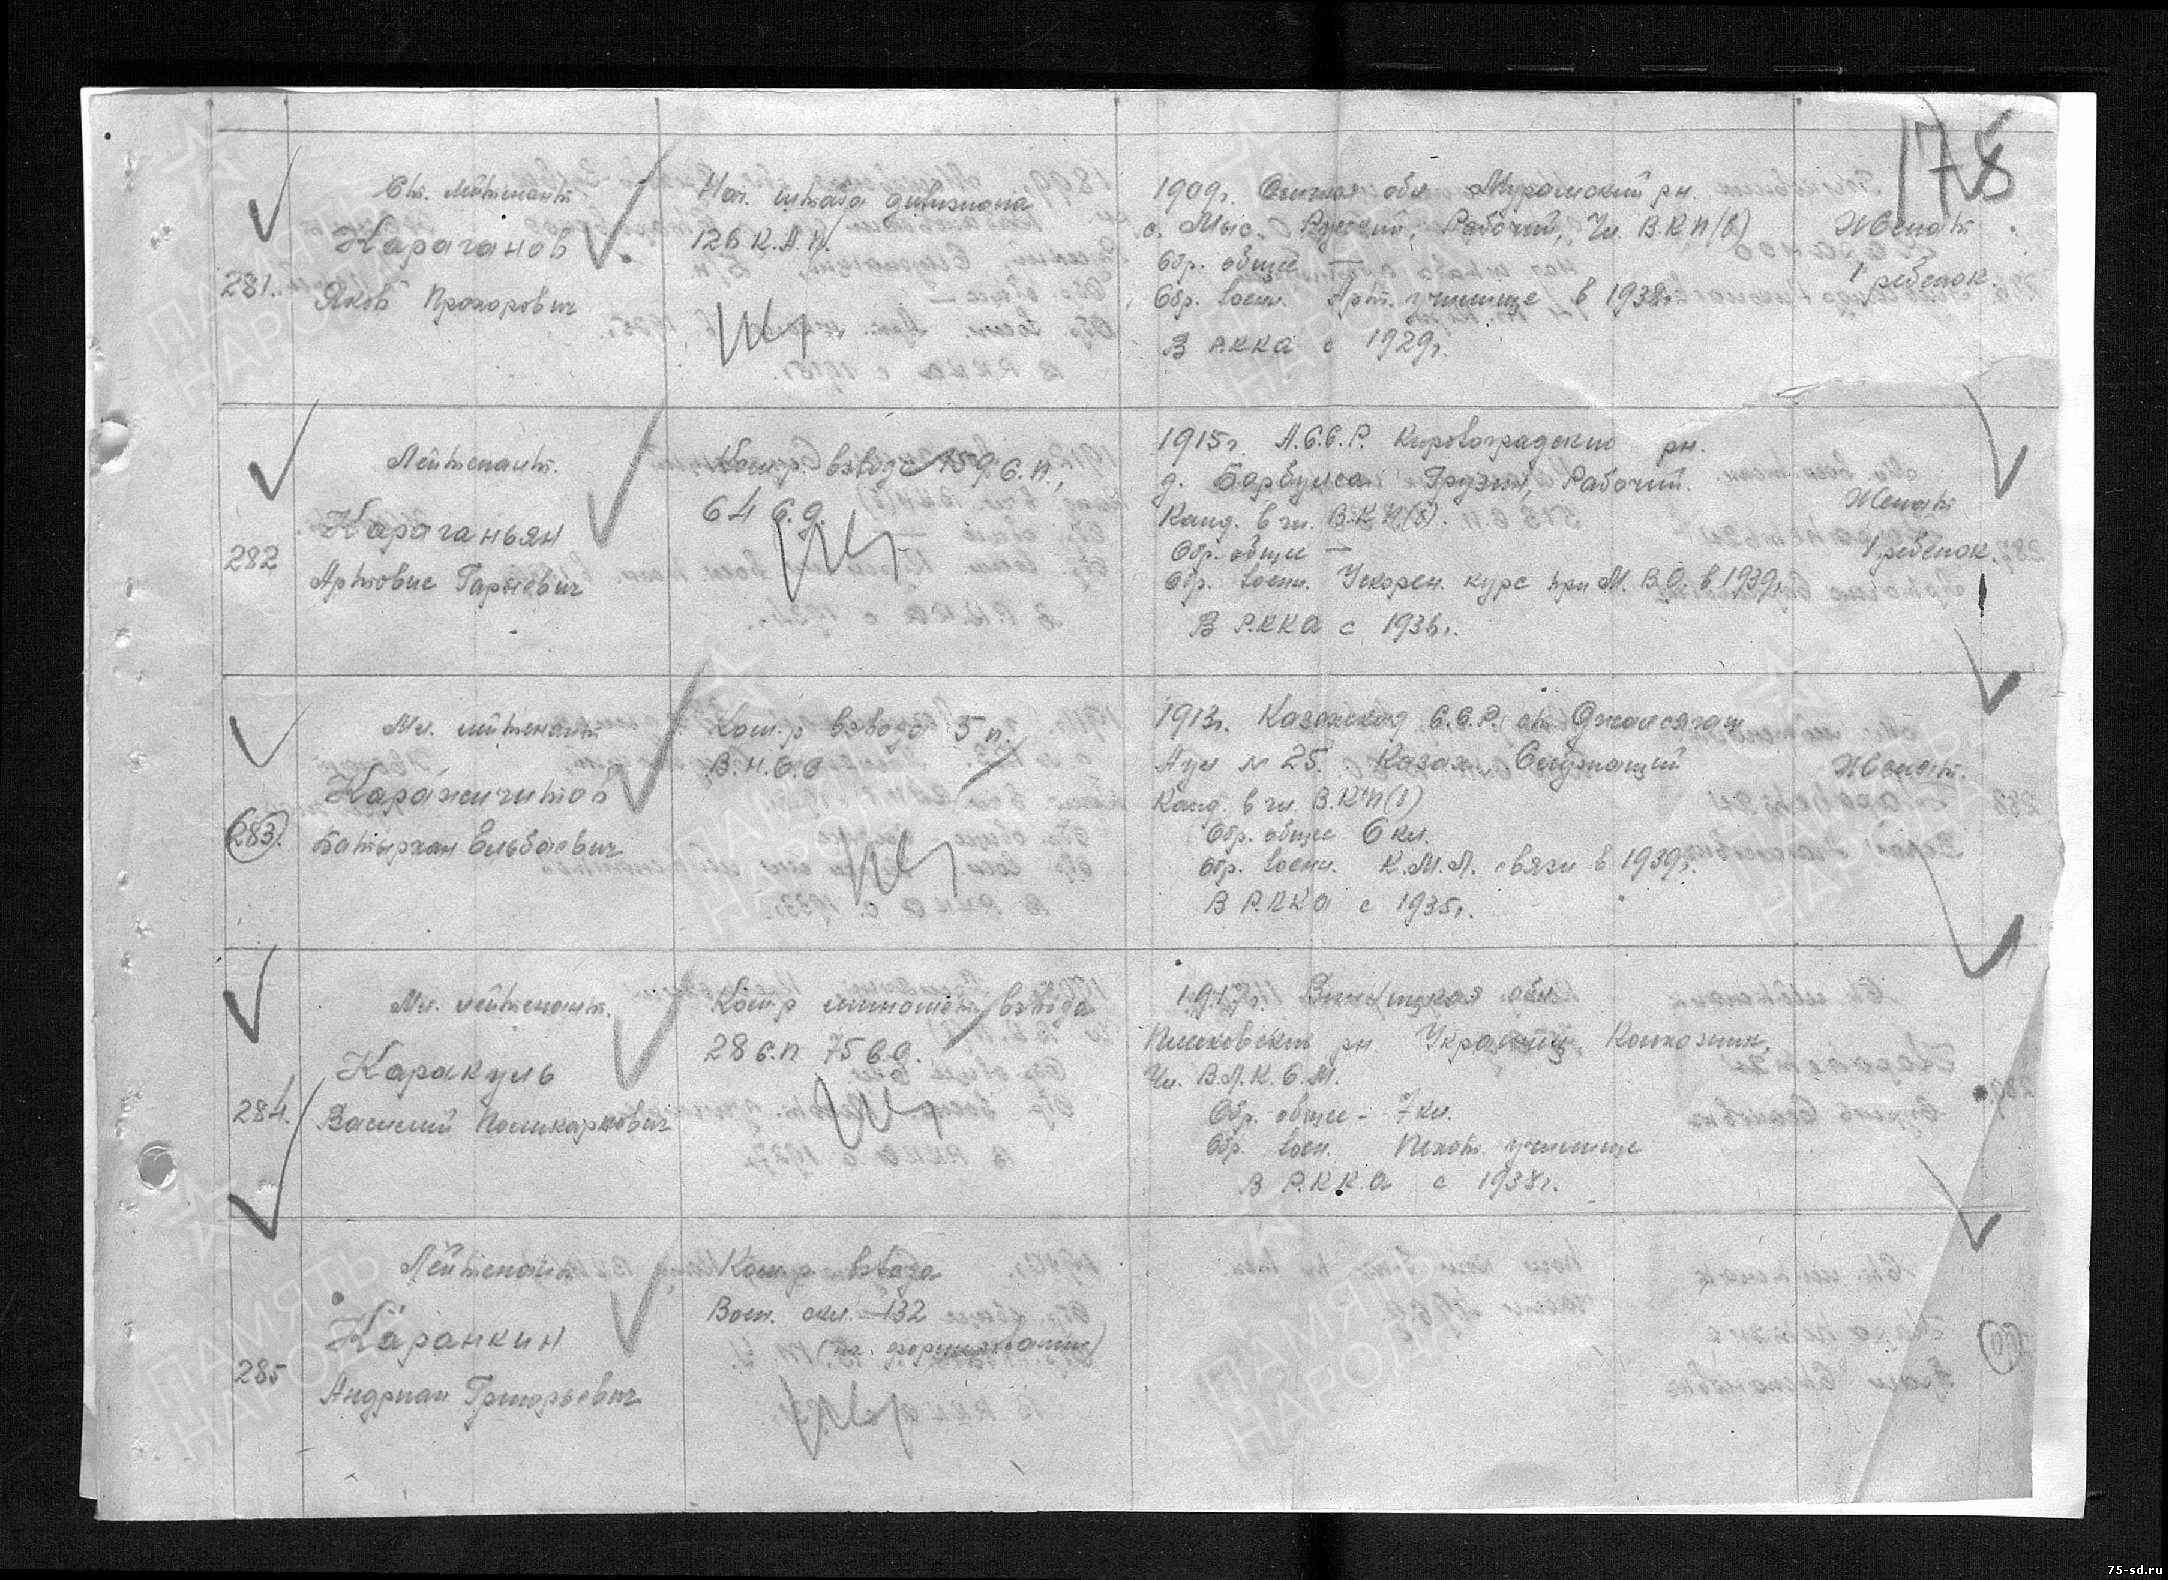 178
281.
Ст. лейтенант
Караганов
Яков Прохорович
Нач. штаба дивизиона
126 К.А.П.
1909г. Омская обл. Муромский рн.
с. Мыс. Русский, Рабочий, Чл. В.К.П(б)
Обр. общее —
Обр. воен. Арт. училище в 1938г.
В Р.К.К.А с 1929г.
Женат
1 ребенок.
282
Лейтенант.
Караганьян
Артовис Гарыевич
Ком-р взвода 159 с.п.,
64 с.д.
1915г. А.С.С.Р. Кировоградский рн.
д. Грузин, Рабочий.
Канд. в чл. В.К.П(б).
Обр. общее —
Обр. воен. Ускорен. курс при М.В.О. в 1939г.
В Р.К.К.А с 1936г.
Женат
1 ребенок.
283.
Мл. лейтенант
Каражигитов
Батырхан Ельбаевич
Ком-р взвода 5 п.
В.Н.О.С
1913г. Казахская С.С.Р. ст.
Аул № 25. Казах. Служащий
Канд. в чл. В.К.П(б)
Обр. общее 6 кл.
Обр. воен. К.М.Л. связи в 1939г.
В Р.К.К.А с 1935г.
Женат.
284.
Мл. лейтенант.
Каракуль
Василий Поликарпович
Ком-р миномет. взвода
28 с.п 75 с.д.
1917г. Винницкая обл.
рн. Украинец, Колхозник,
Чл. В.Л.К.С.М.
Обр. общее - 7 кл.
Обр. воен. Пехот. училище
В Р.К.К.А с 1938г.
285
Лейтенант
Каранкин
Андриан Григорьевич
Ком-р взвода
Воен. скл. – 132
(на формировании)
ПАМЯТЬ
НАРОДА
75-sd.ru